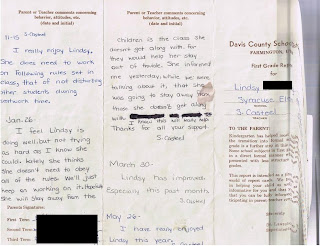 Parent or Teacher comments concerning
behavior, attitudes, etc.
(date and initial)
11-15 S. Casteel
I really enjoy Lindsy.
She does need to work
on following rules set in
class, that of not disturbing
other students during
seatwork time.
Jan. 26
I feel Lindsy is
doing well but not trying
as hard as I know she
could. Lately she thinks
she doesn't need to obey
all of the rules. We'll just
keep on working on it.
She will stay away from the
Parents Signatures:
First Term
Second Term
Third Term
Parent or Teacher comments concerning
behavior, attitudes, etc.
(date and initial)
Children in the class she
doesn't get along with, for
they would help her stay
out of trouble. She informed
me yesterday, while we were
talking about it, that she
was going to stay away from
those she doesn't get along
with.
I know this will really help
Thanks for all your support
S. Casteel
March 30-
Lindsy has improved.
Especially this past month.
S. Casteel
May 26-
I have really enjoyed
Lindsy this year.
Davis County School
FARMINGTON,
First Grade Rep
for
Lindsy
Syracuse Ele
S. Casteel
TO THE PARENT: